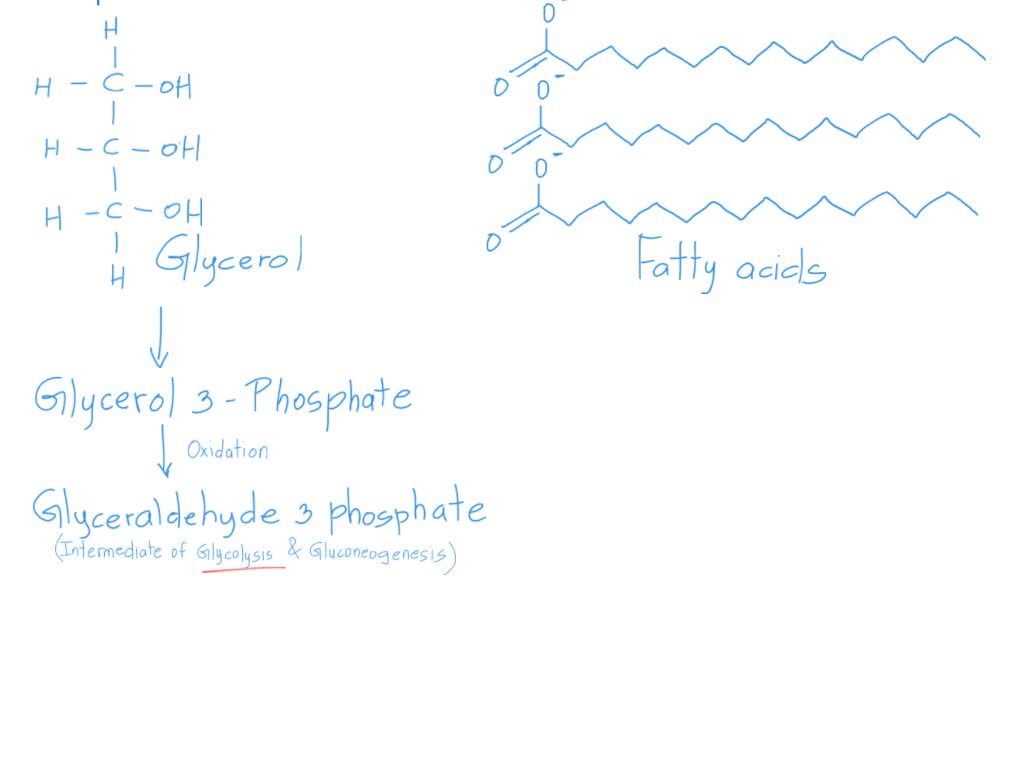 H
H - C - OH
H - C - OH
H - C - OH
H
Glycerol
O
O
O⁻
O
O⁻
O
Fatty acids
Glycerol 3 - Phosphate
Oxidation
Glyceraldehyde 3 phosphate
(Intermediate of Glycolysis & Gluconeogenesis)